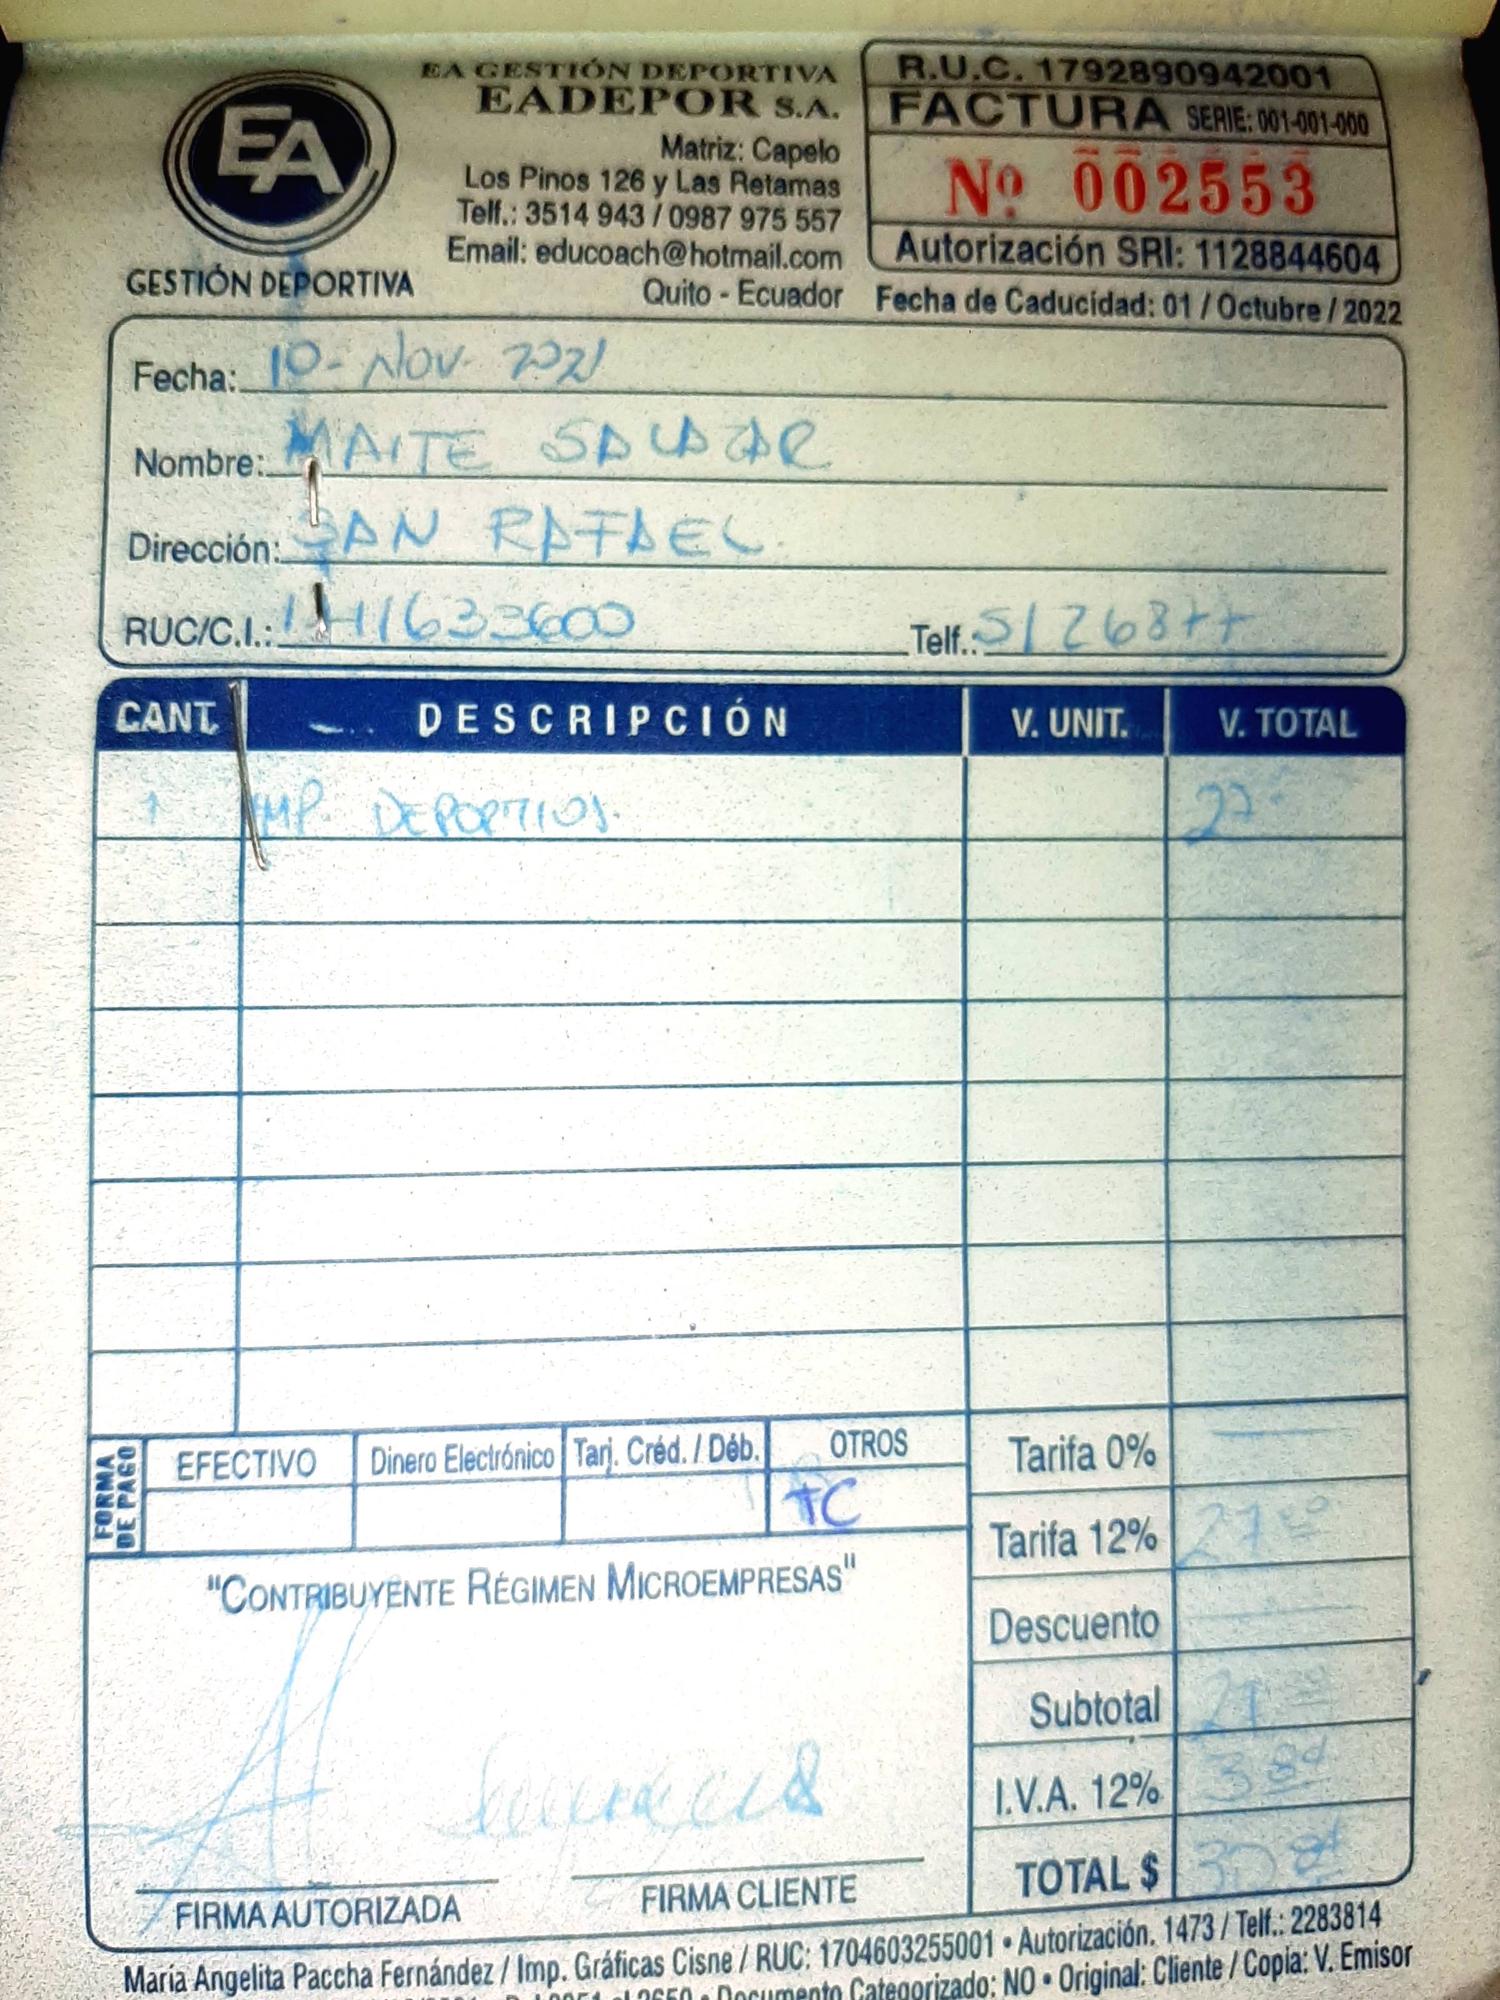 EA
GESTIÓN DEPORTIVA
EA GESTIÓN DEPORTIVA
EADEPOR S.A.
Matriz: Capelo
Los Pinos 126 y Las Retamas
Telf.: 3514 943 / 0987 975 557
Email: educoach@hotmail.com
Quito - Ecuador
R.U.C. 1792890942001
FACTURA SERIE: 001-001-000
Nº 002553
Autorización SRI: 1128844604
Fecha de Caducidad: 01 / Octubre / 2022
Fecha: 10-Nov-2021
Nombre: MAITE SALAZAR
Dirección: SAN RAFAEL
RUC/C.I.: Telf.: 5126877
CANT. DESCRIPCIÓN V. UNIT. V. TOTAL
1 IMP. DEPORTIOS. 27
FORMA DE PAGO
EFECTIVO Dinero Electrónico Tarj. Créd. / Déb. OTROS
TC
Tarifa 0%
Tarifa 12% 27
Descuento
Subtotal 27
I.V.A. 12%
TOTAL $
"CONTRIBUYENTE RÉGIMEN MICROEMPRESAS"
FIRMA AUTORIZADA FIRMA CLIENTE
María Angelita Paccha Fernández / Imp. Gráficas Cisne / RUC: 1704603255001 • Autorización. 1473 / Telf.: 2283814
Documento Categorizado: NO • Original: Cliente / Copia: V. Emisor